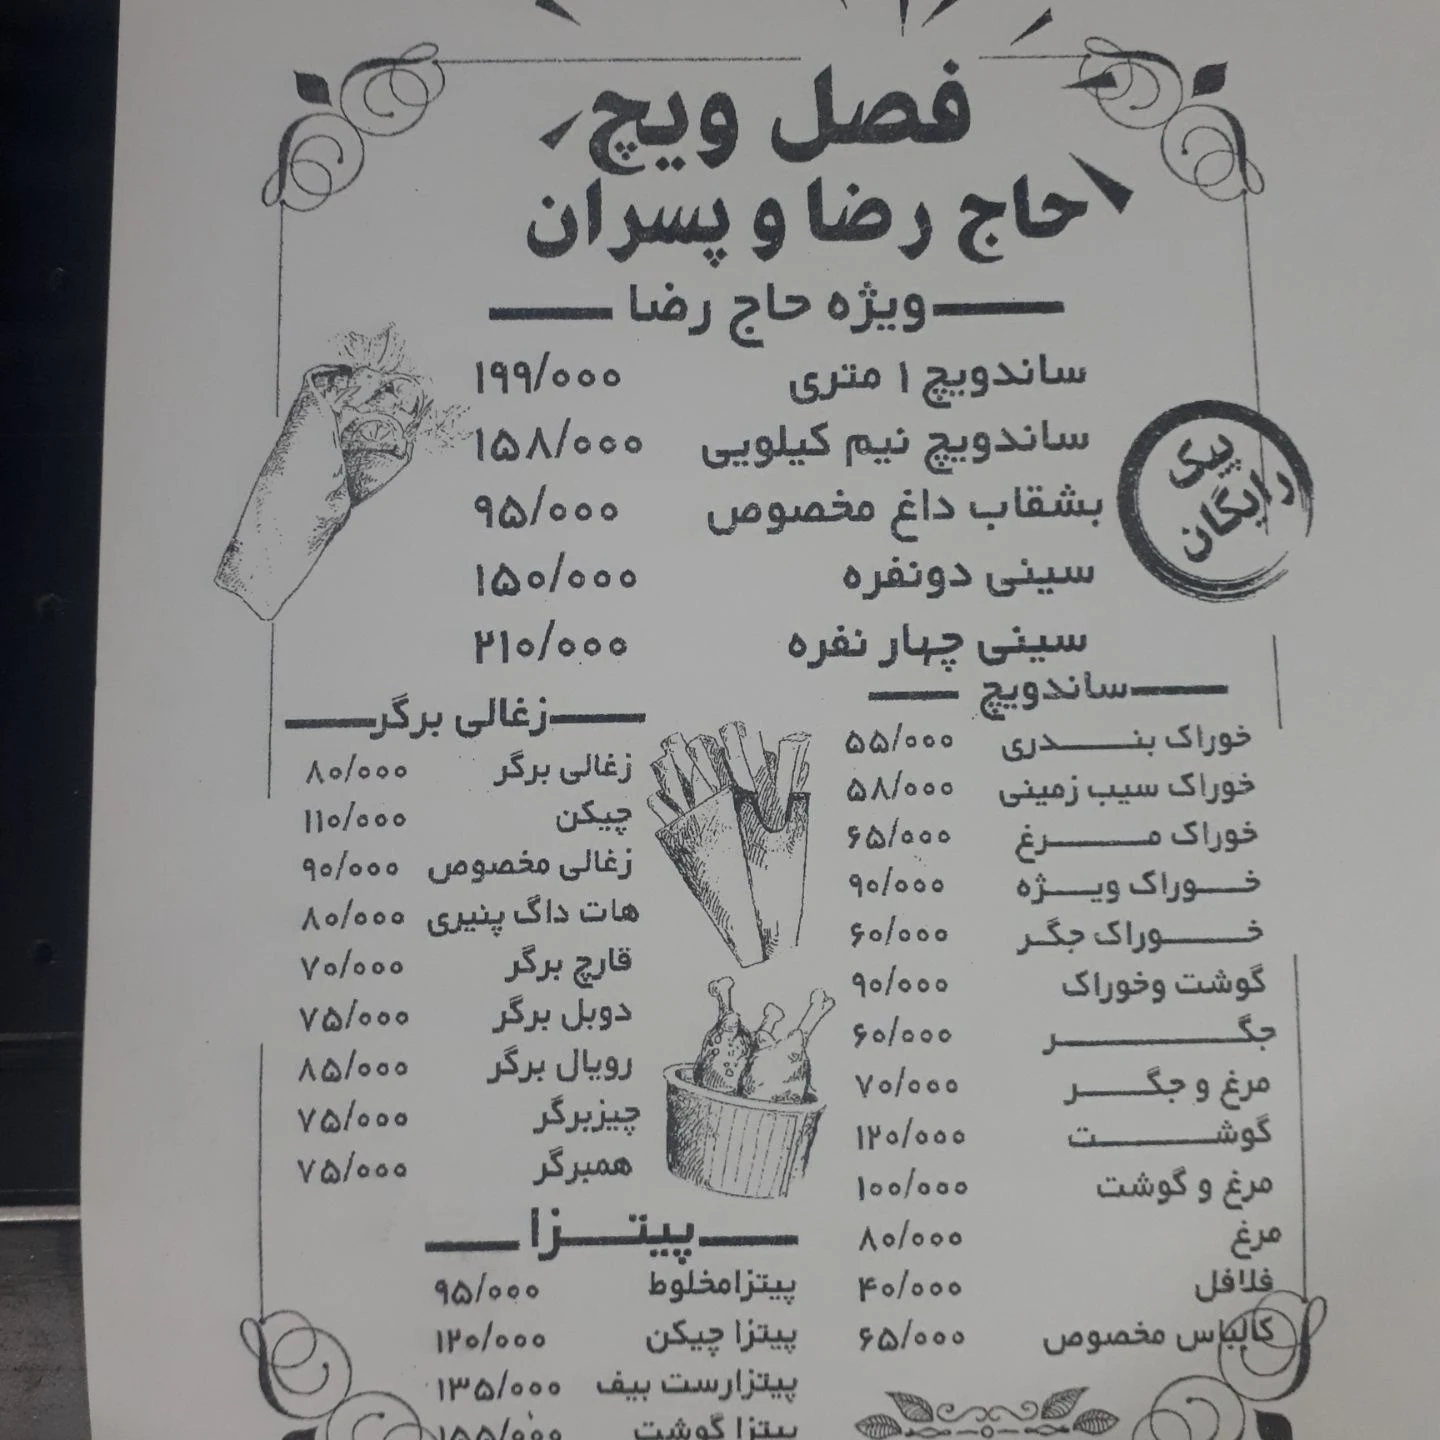 فصل ویچ
حاج رضا و پسران
ویژه حاج رضا
ساندویچ ۱ متری ۱۹۹/۰۰۰
ساندویچ نیم کیلویی ۱۵۸/۰۰۰
بشقاب داغ مخصوص ۹۵/۰۰۰
سینی دونفره ۱۵۰/۰۰۰
سینی چهار نفره ۲۱۰/۰۰۰
پیک
رایگان
ساندویچ
خوراک بندری ۵۵/۰۰۰
خوراک سیب زمینی ۵۸/۰۰۰
خوراک مرغ ۶۵/۰۰۰
خوراک ویژه ۹۰/۰۰۰
خوراک جگر ۶۰/۰۰۰
گوشت وخوراک ۹۰/۰۰۰
جگر ۶۰/۰۰۰
مرغ و جگر ۷۰/۰۰۰
گوشت ۱۲۰/۰۰۰
مرغ و گوشت ۱۰۰/۰۰۰
مرغ ۸۰/۰۰۰
فلافل ۴۰/۰۰۰
کالباس مخصوص ۶۵/۰۰۰
زغالی برگر
زغالی برگر ۸۰/۰۰۰
چیکن ۱۱۰/۰۰۰
زغالی مخصوص ۹۰/۰۰۰
هات داگ پنیری ۸۰/۰۰۰
قارچ برگر ۷۰/۰۰۰
دوبل برگر ۷۵/۰۰۰
رویال برگر ۸۵/۰۰۰
چیزبرگر ۷۵/۰۰۰
همبرگر ۷۵/۰۰۰
پیتزا
پیتزامخلوط ۹۵/۰۰۰
پیتزا چیکن ۱۲۰/۰۰۰
پیتزارست بیف ۱۳۵/۰۰۰
پیتزا گوشت